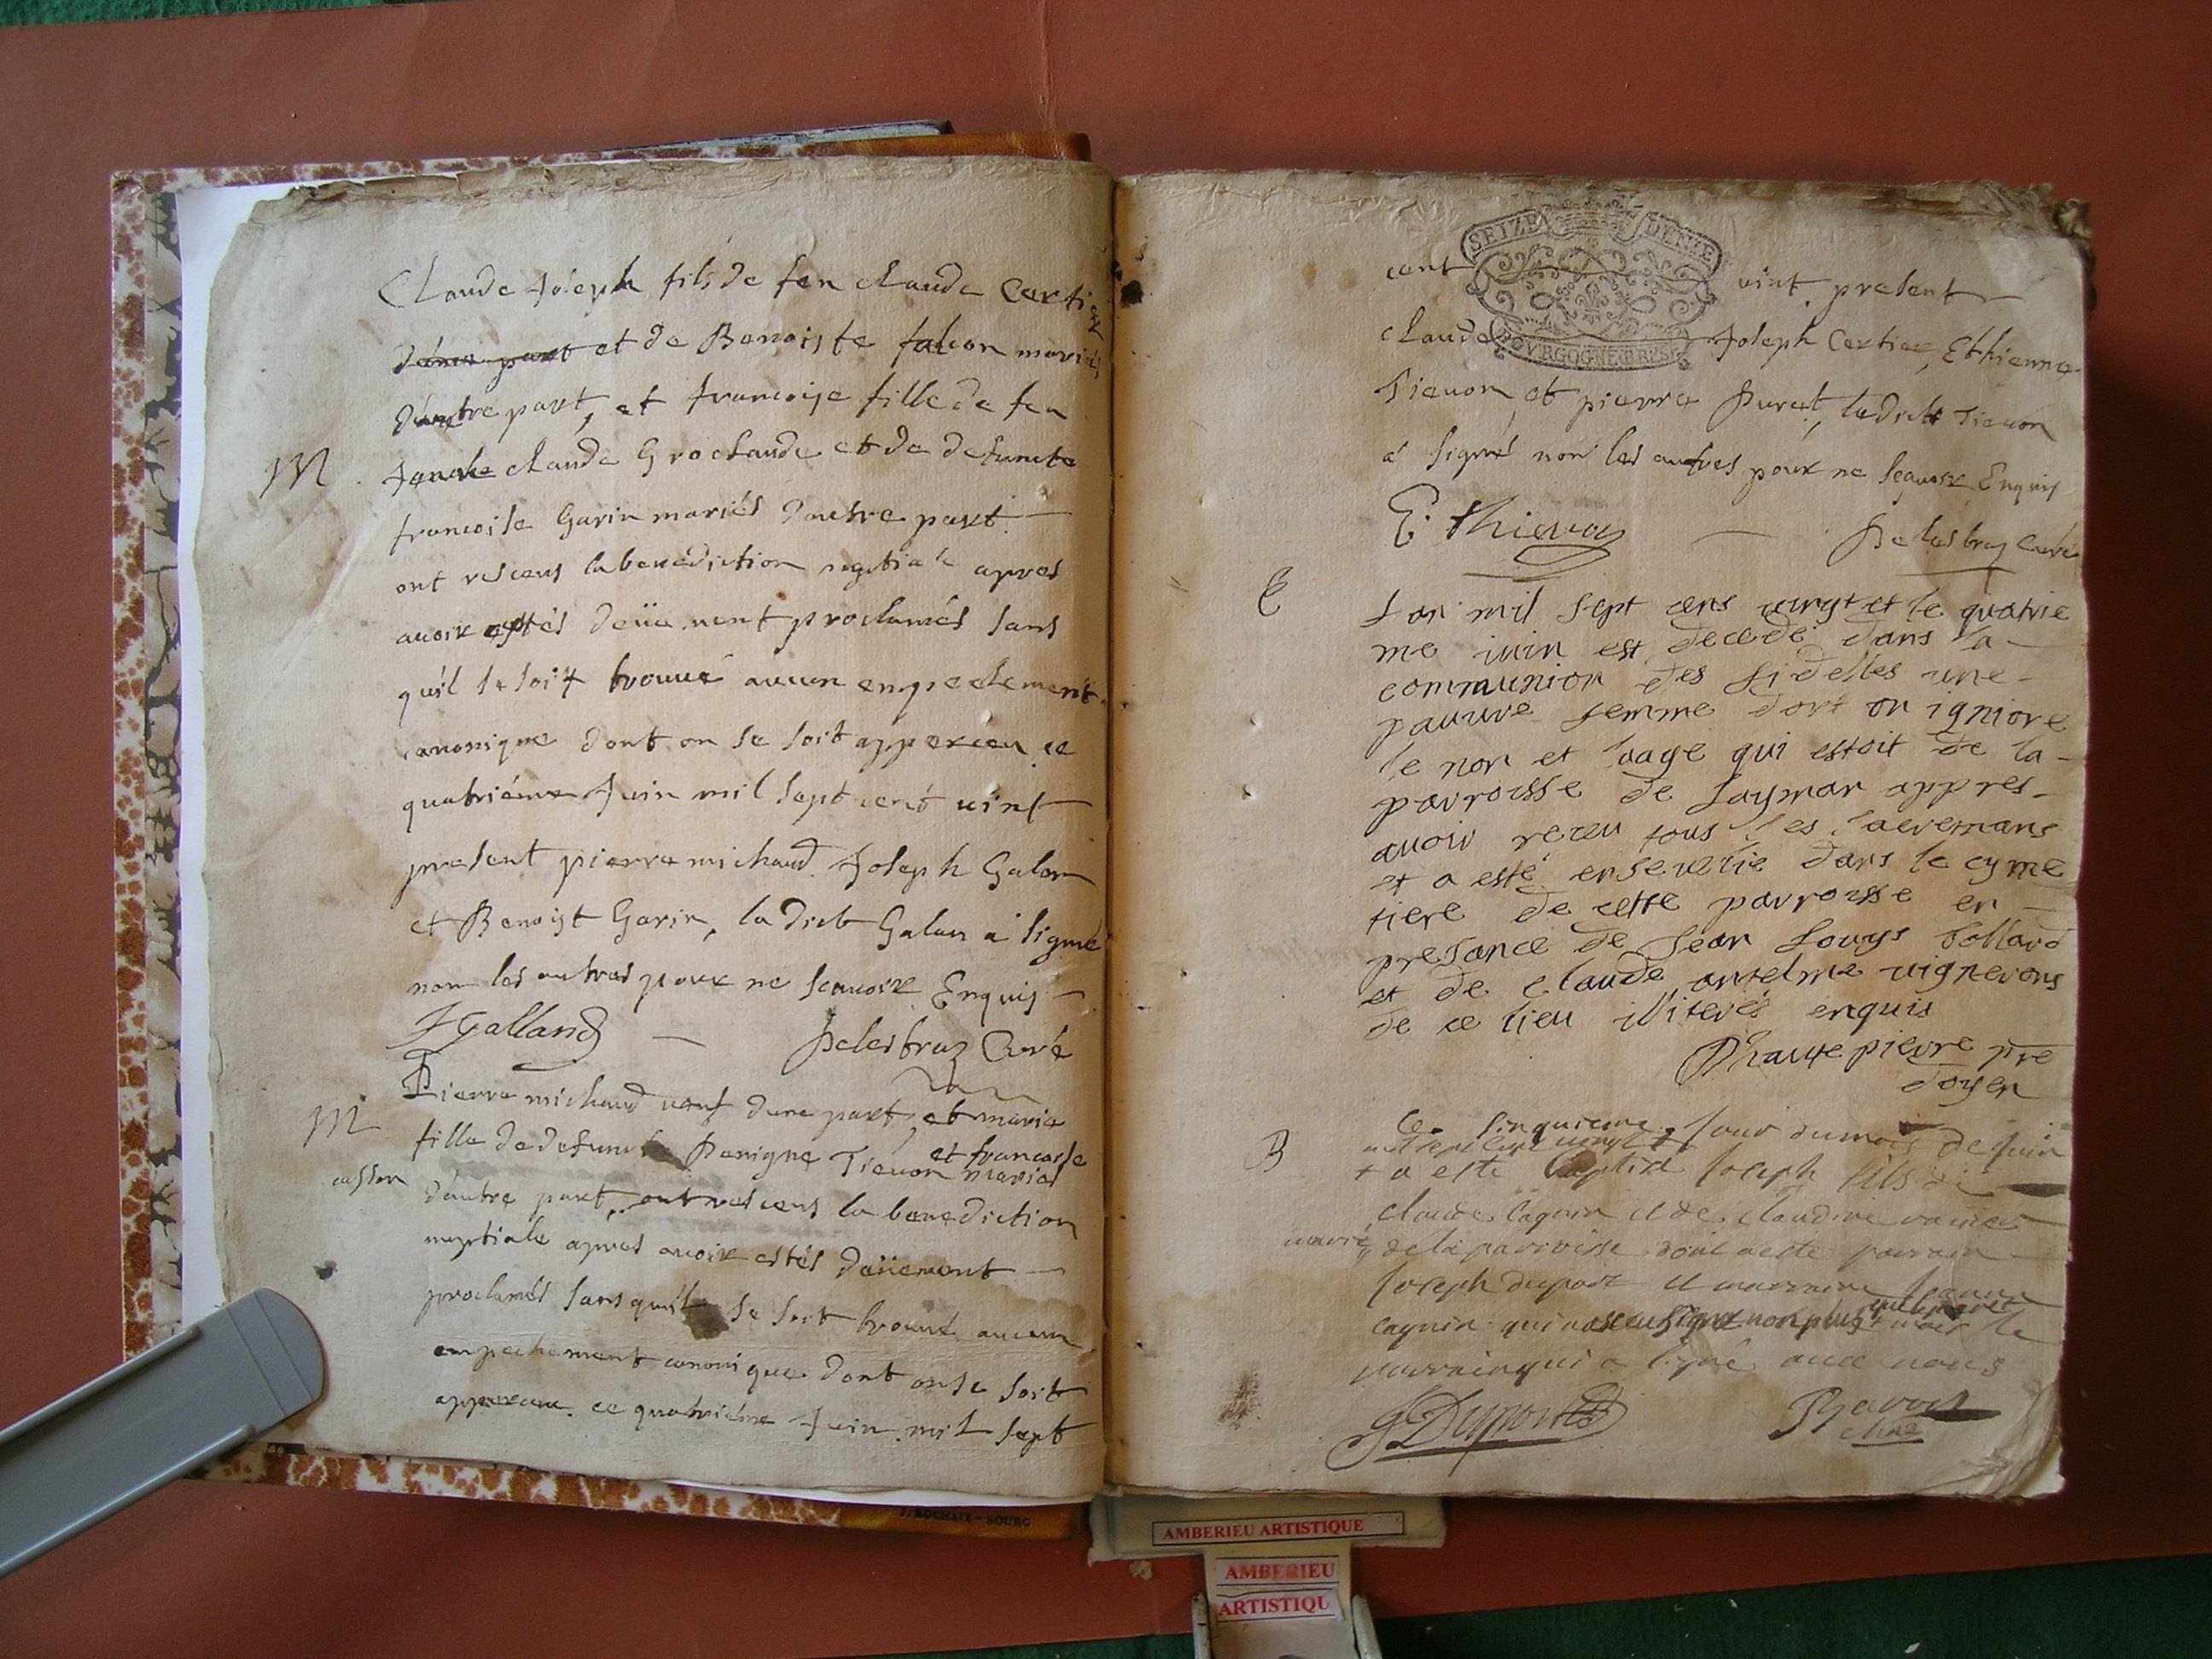 Claude Joseph fils de feu claude Certier
d'une part et de Benoiste falcon mariés
d'autre part, et francoise fille de feu
M
claude Groclaude et de defuncte
francoise Garin mariés d'autre part
ont resceus la benediction nuptiale apres
auoir estés deüement proclamés sans
qu'il se soit trouué aucun empechement
canonique dont on se soit apperceu ce
quatriéme Juin mil sept cent uint
present pierre michaud Joseph Galan
et Benoist Garin, le dict Galan a signé
non les autres pour ne scauoir Enquis
J Galland
Delesbraz Curé
Pierre michaud ueuf d'une part, et marie
M
fille de defunct Benigne Tieuon et francoise mariés
d'autre part, ont resceus la benediction
nuptiale apres auoir estés deüement
proclamés sans qu'il se soit trouué aucun
empechement canonique dont on se soit
apperceu ce quatriéme Juin mil sept
SEIZE DENIE
BOVRGOGNE BRESS
cent uint present
claude Joseph Certier, Ethienne
Tieuon et pierre Puret, le dict Tieuon
a signé non les autres pour ne scauoir Enquis
E thieuon
Delesbraz Curé
E
L'an mil sept cens vingt et le quatrie
me iuin est decedé dans la
communion des fidelles une
pauure femme dont on igniore
le non et laage qui estoit de la
parroisse de Laymar appres
auoir receu tous les sacremans
et a esté enseuelie dans le cyme
tiere de cette parroisse en
presance de Jean Louys bollard
et de claude antelme vignerons
de ce lieu illiterés enquis
Dhautepierre pre
doyen
B
Ce sinquieme Jour du mois de Juin
mil sept cent vingt
a este baptisé Joseph fils de
claude Cagnin et de Claudine
de la parroisse dont a esté parrain
Joseph dupont et marraine
cagnin qui signé non plus que
parrain qui a signé auec nous
J Dupont